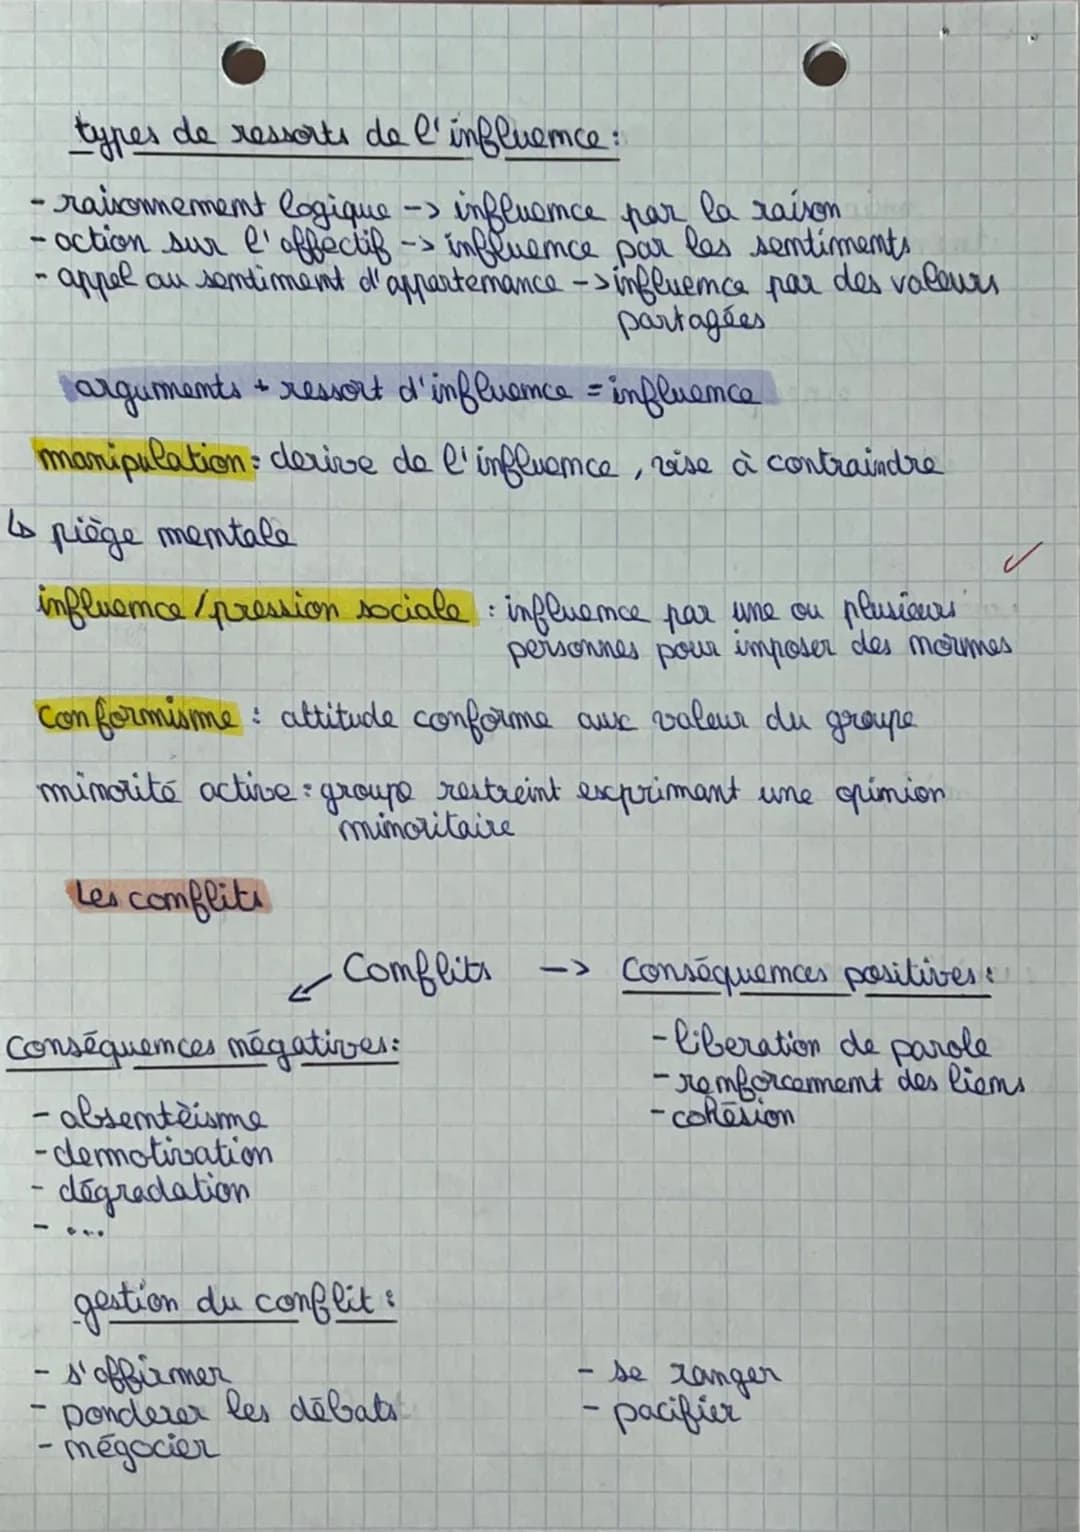 types de ressorts de l'influence :
- raisonnement logique -> influence par la raison
- action sur l'affectif -> influence par les sentiments
- appel au sentiment d'appartenance -> influence par des valeurs
partagées
arguments + ressort d'influence = influence
manipulation : derive de l'influence, vise à contraindre
↳ piège mentale
influence / pression sociale : influence par une ou plusieurs
personnes pour imposer des normes
Conformisme : attitude conforme aux valeur du groupe
minorité active : groupe restreint exprimant une opinion
minoritaire
Les conflits
Conflits -> Conséquences positives :
Conséquences négatives :
- liberation de parole
- renforcement des liens
- cohésion
- absentèisme
- demotivation
- dégradation
- ...
gestion du conflit :
- s'affirmer
- ponderer les débats
- négocier
- se ranger
- pacifier